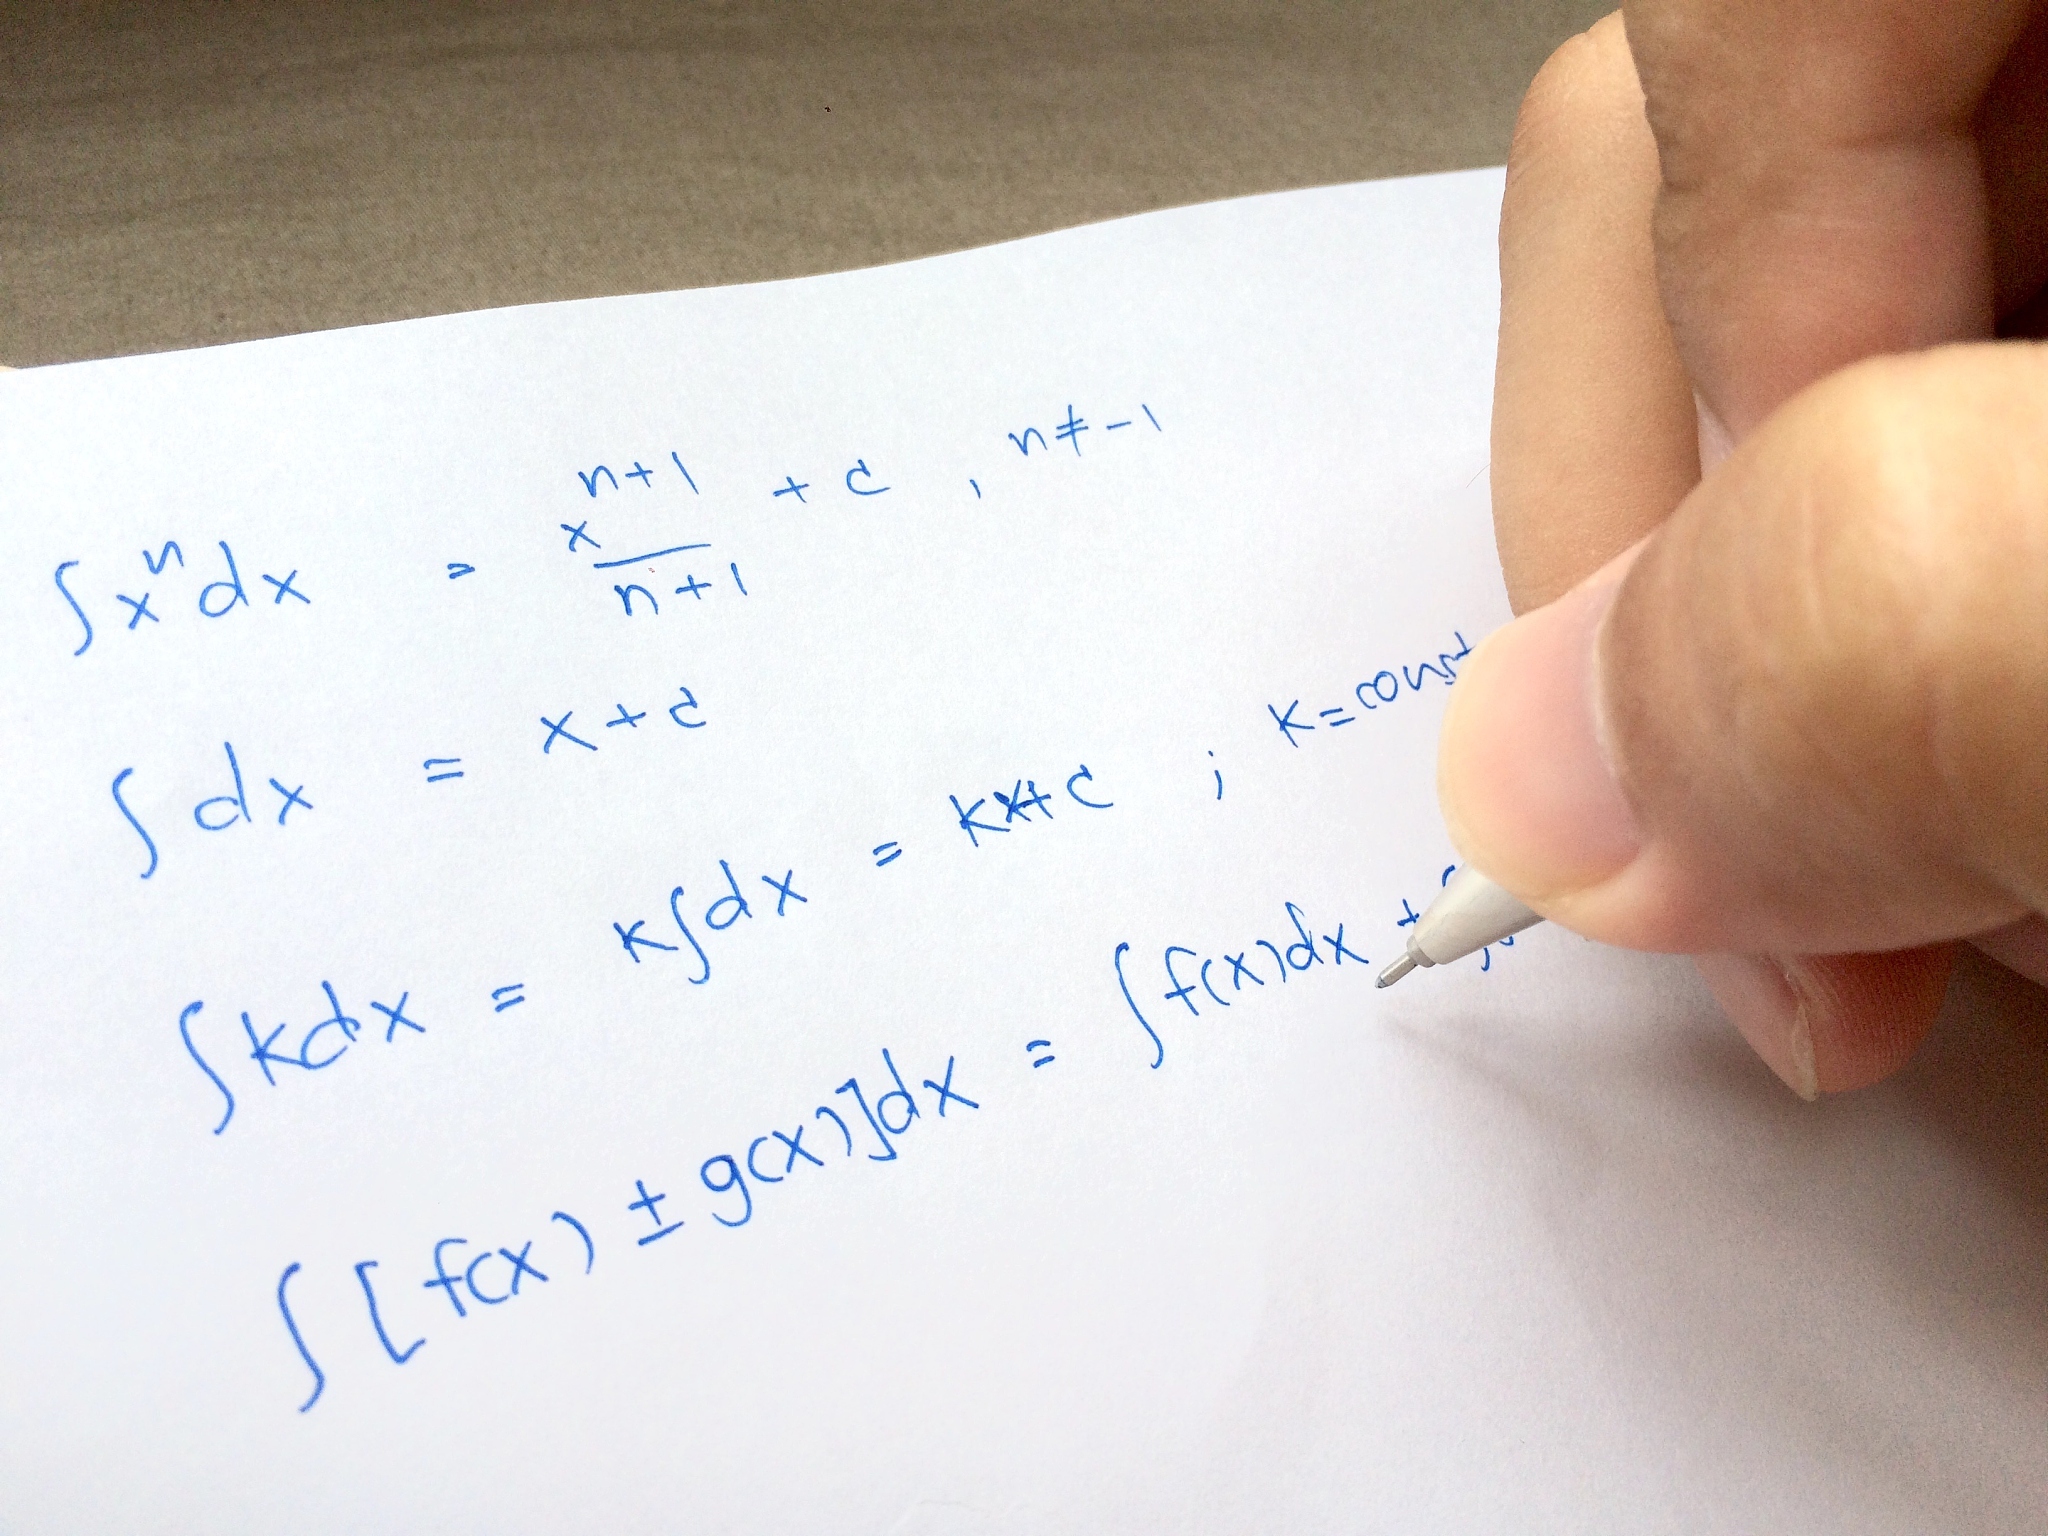 ∫xⁿdx = xⁿ⁺¹/n+1 + c , n≠-1
∫dx = x+c
∫kdx = k∫dx = kx+c ; k=const
∫[f(x) ± g(x)]dx = ∫f(x)dx